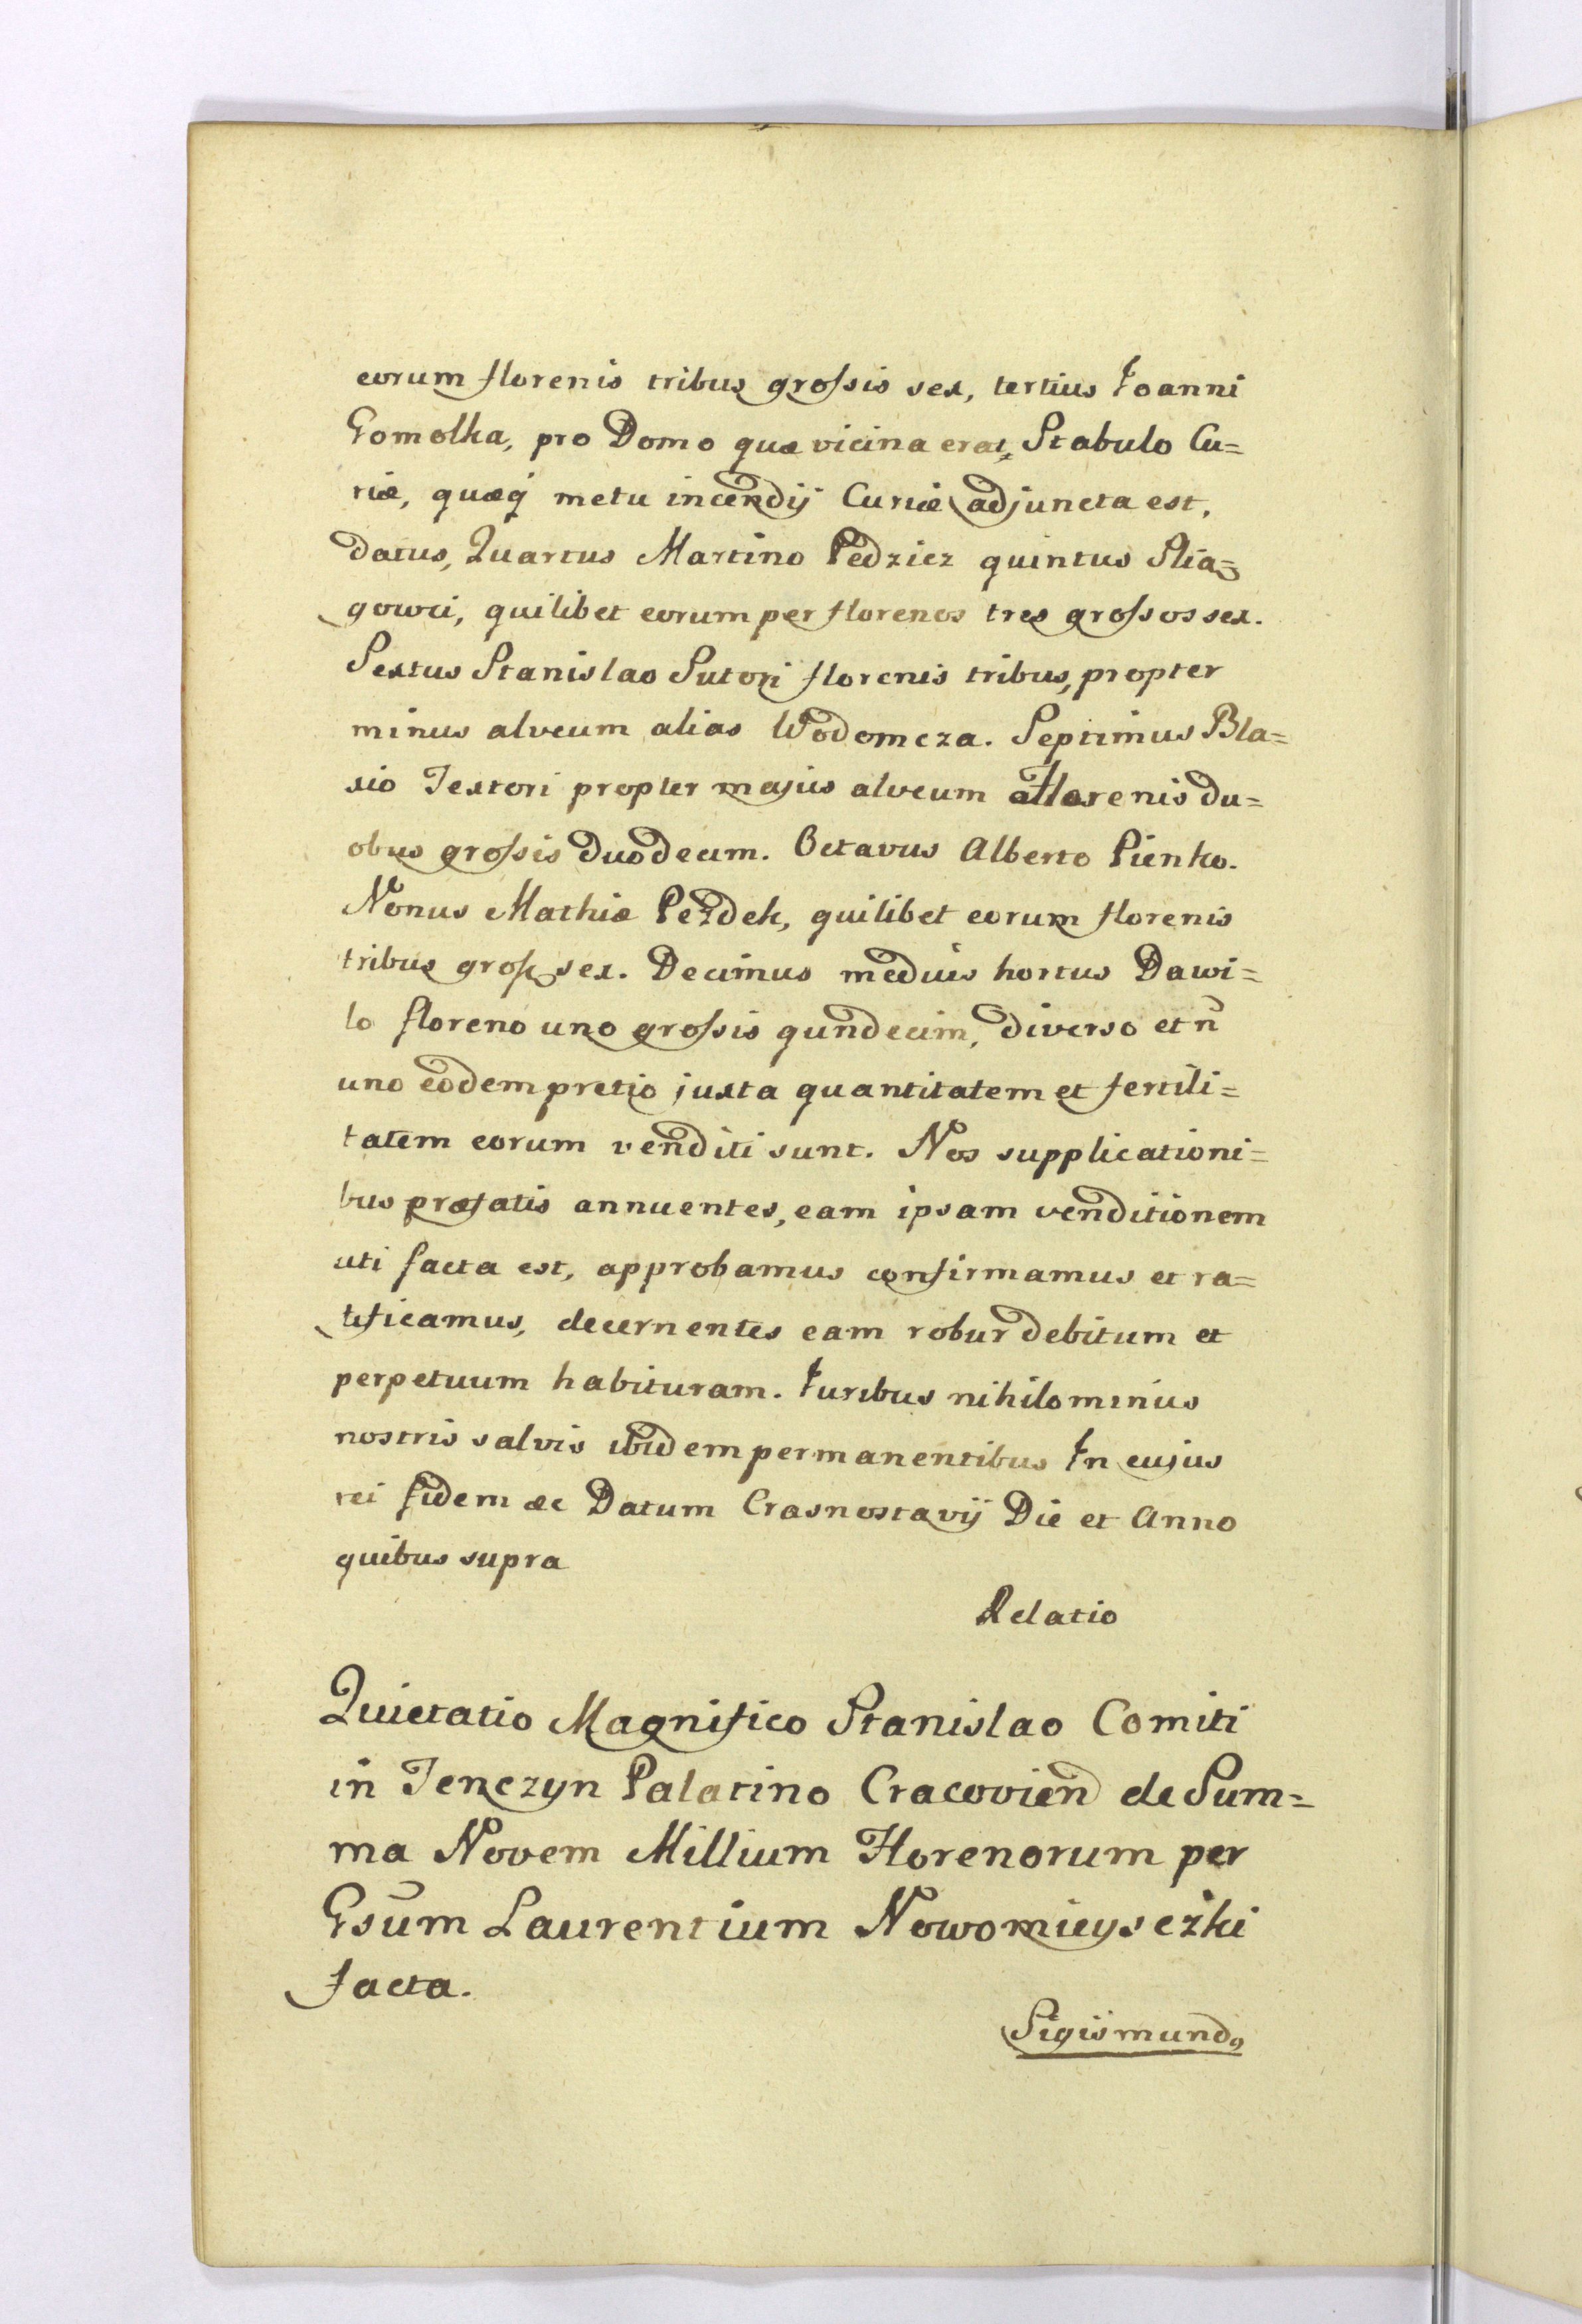 eorum florenis tribus grossis sex, tertius Ioanni
Gomolka, pro Domo quæ vicina erat, Stabulo Cu=
riæ, quæq metu incendij Curiæ adjuncta est,
datus, Quartus Martino Pedzicz quintus Slia=
gowci, quilibet eorum per florenos tres grossos sex.
Sextus Stanislao Sutori florenis tribus, propter
minus alveum alias Wodomcza. Septimus Bla=
sio Textori propter majus alveum florenis du=
obus grossis duodecim. Octavus Alberto Pienko.
Nonus Mathiæ Peżdek, quilibet eorum florenis
tribus gross sex. Decimus medius hortus Dawi=
lo floreno uno grossis qundecim, diverso et n̄
uno eodem pretio juxta quantitatem et fertili=
tatem eorum venditi sunt. Nos supplicationi=
bus præfatis annuentes, eam ipsam venditionem
uti facta est, approbamus confirmamus et ra=
tificamus, decernentes eam robur debitum et
perpetuum habituram. Iuribus nihilominus
nostris salvis ibidem permanentibus In cujus
rei fidem &c Datum Crasnostavij Die et Anno
quibus supra
Relatio
Quietatio Magnifico Stanislao Comiti
in Tenczyn Palatino Cracovien de Sum=
ma Novem Millium Florenorum per
Gsūm Laurentium Nowomieysczki
facta.
Sigismund9